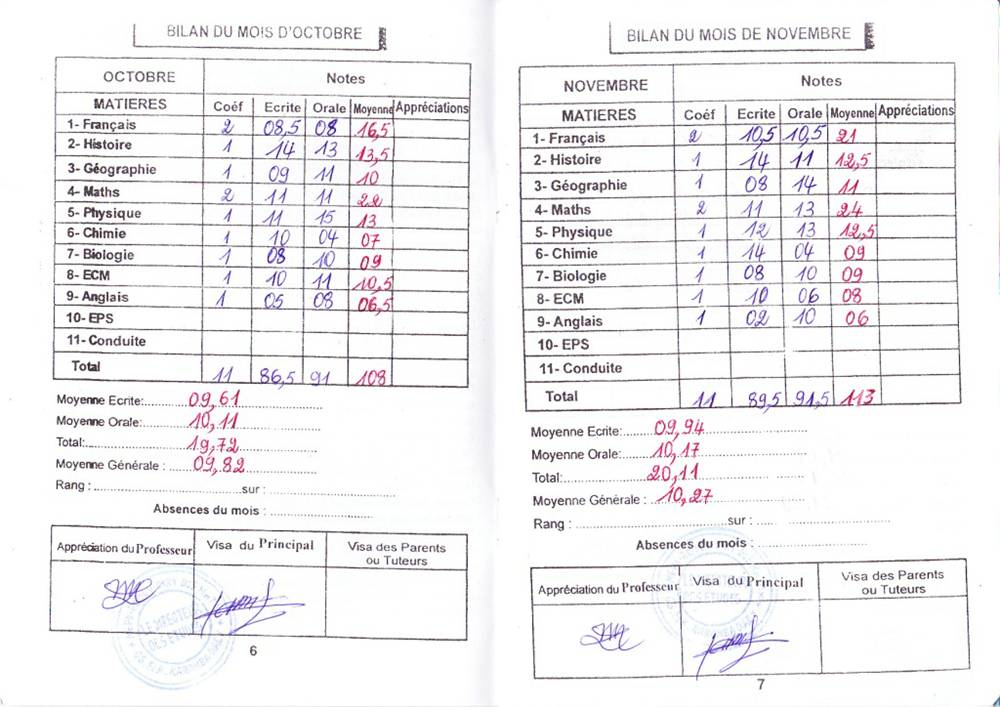 BILAN DU MOIS D'OCTOBRE
OCTOBRE Notes
MATIERES Coéf Ecrite Orale Moyenne Appréciations
1- Français 2 08,5 08 16,5
2- Histoire 1 14 13 13,5
3- Géographie 1 09 11 10
4- Maths 2 11 11 22
5- Physique 1 11 15 13
6- Chimie 1 10 04 07
7- Biologie 1 08 10 09
8- ECM 1 10 11 10,5
9- Anglais 1 05 08 06,5
10- EPS
11- Conduite
Total 11 86,5 91 108
Moyenne Ecrite: 09,61
Moyenne Orale: 10,11
Total: 19,72
Moyenne Générale : 09,82
Rang : sur :
Absences du mois :
Appréciation du Professeur Visa du Principal Visa des Parents
ou Tuteurs
6
BILAN DU MOIS DE NOVEMBRE
NOVEMBRE Notes
MATIERES Coéf Ecrite Orale Moyenne Appréciations
1- Français 2 10,5 10,5 21
2- Histoire 1 14 11 12,5
3- Géographie 1 08 14 11
4- Maths 2 11 13 24
5- Physique 1 12 13 12,5
6- Chimie 1 14 04 09
7- Biologie 1 08 10 09
8- ECM 1 10 06 08
9- Anglais 1 02 10 06
10- EPS
11- Conduite
Total 11 89,5 91,5 113
Moyenne Ecrite: 09,94
Moyenne Orale: 10,17
Total: 20,11
Moyenne Générale : 10,27
Rang : sur :
Absences du mois :
Appréciation du Professeur Visa du Principal Visa des Parents
ou Tuteurs
7